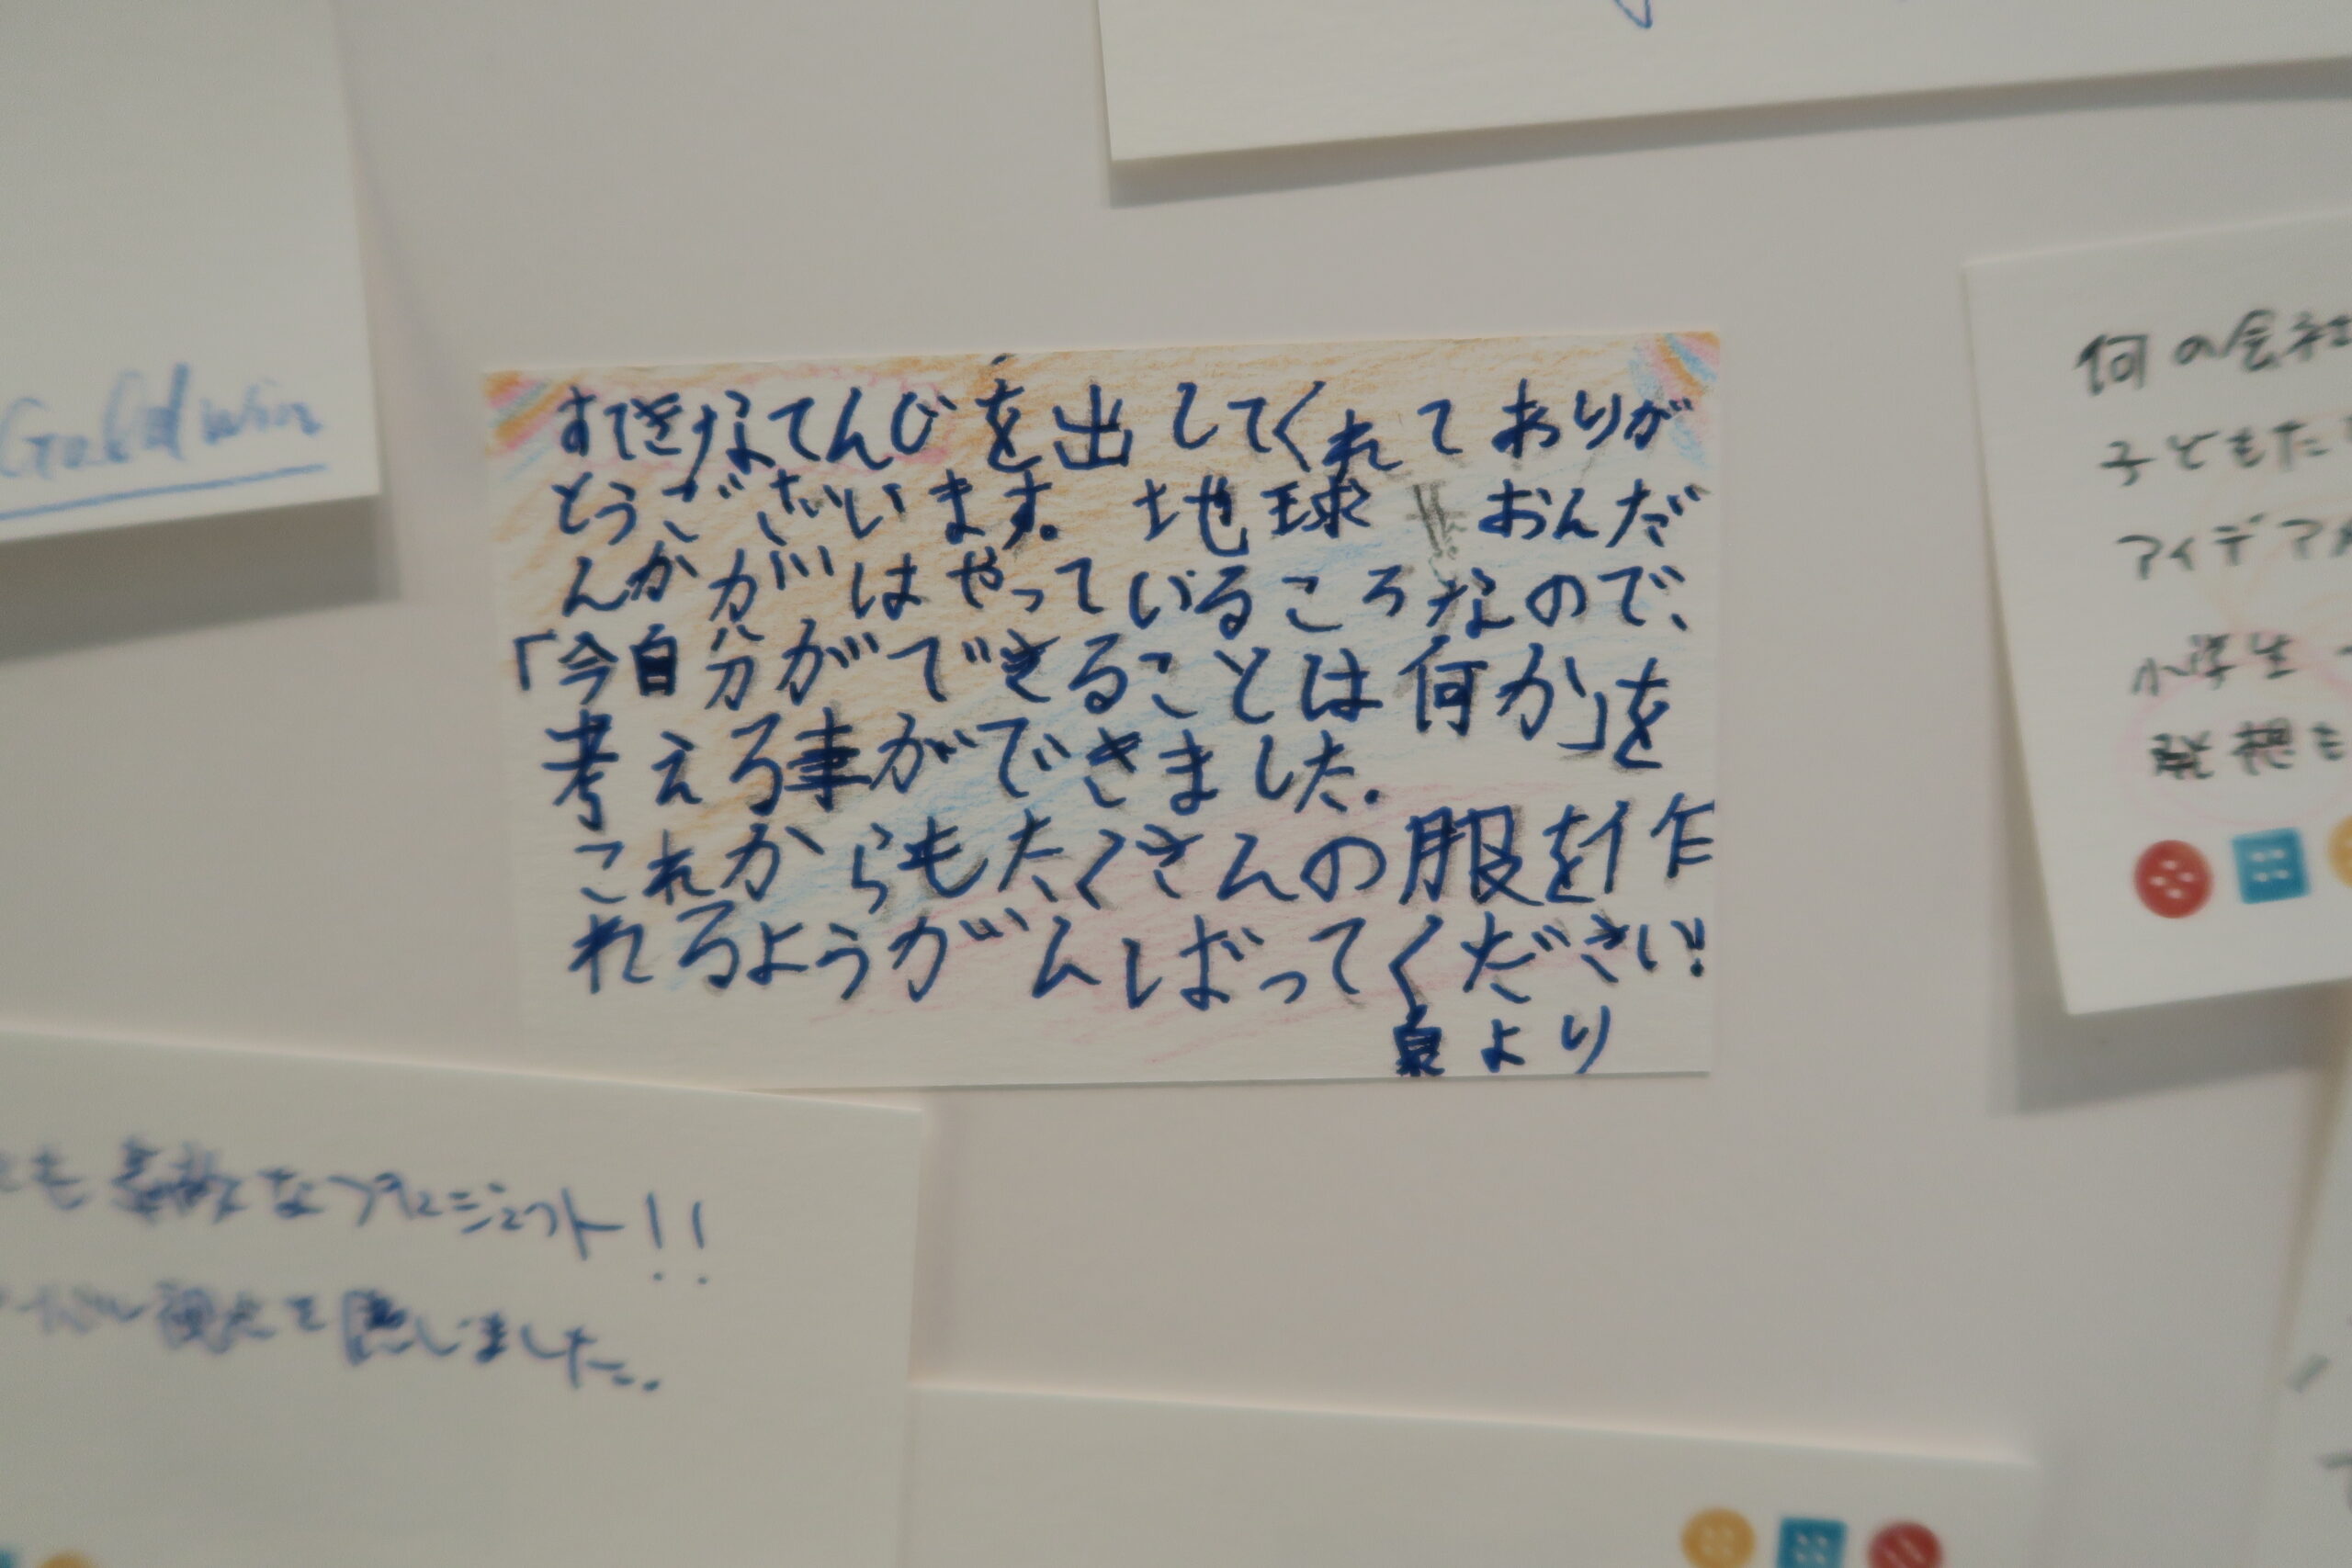 Goldwin
すてきなてんじを出してくれてありが
とうございます。地球おんだ
んかがはやっているころなので、
「今自分ができることは何か」を
考える事ができました.
これからもたくさんの服を作
れるようがんばってください!
泉より
何の会社
子どもた
アイデア
小学生
発想も
も素敵なプロジェクト!!
観点を感じました。